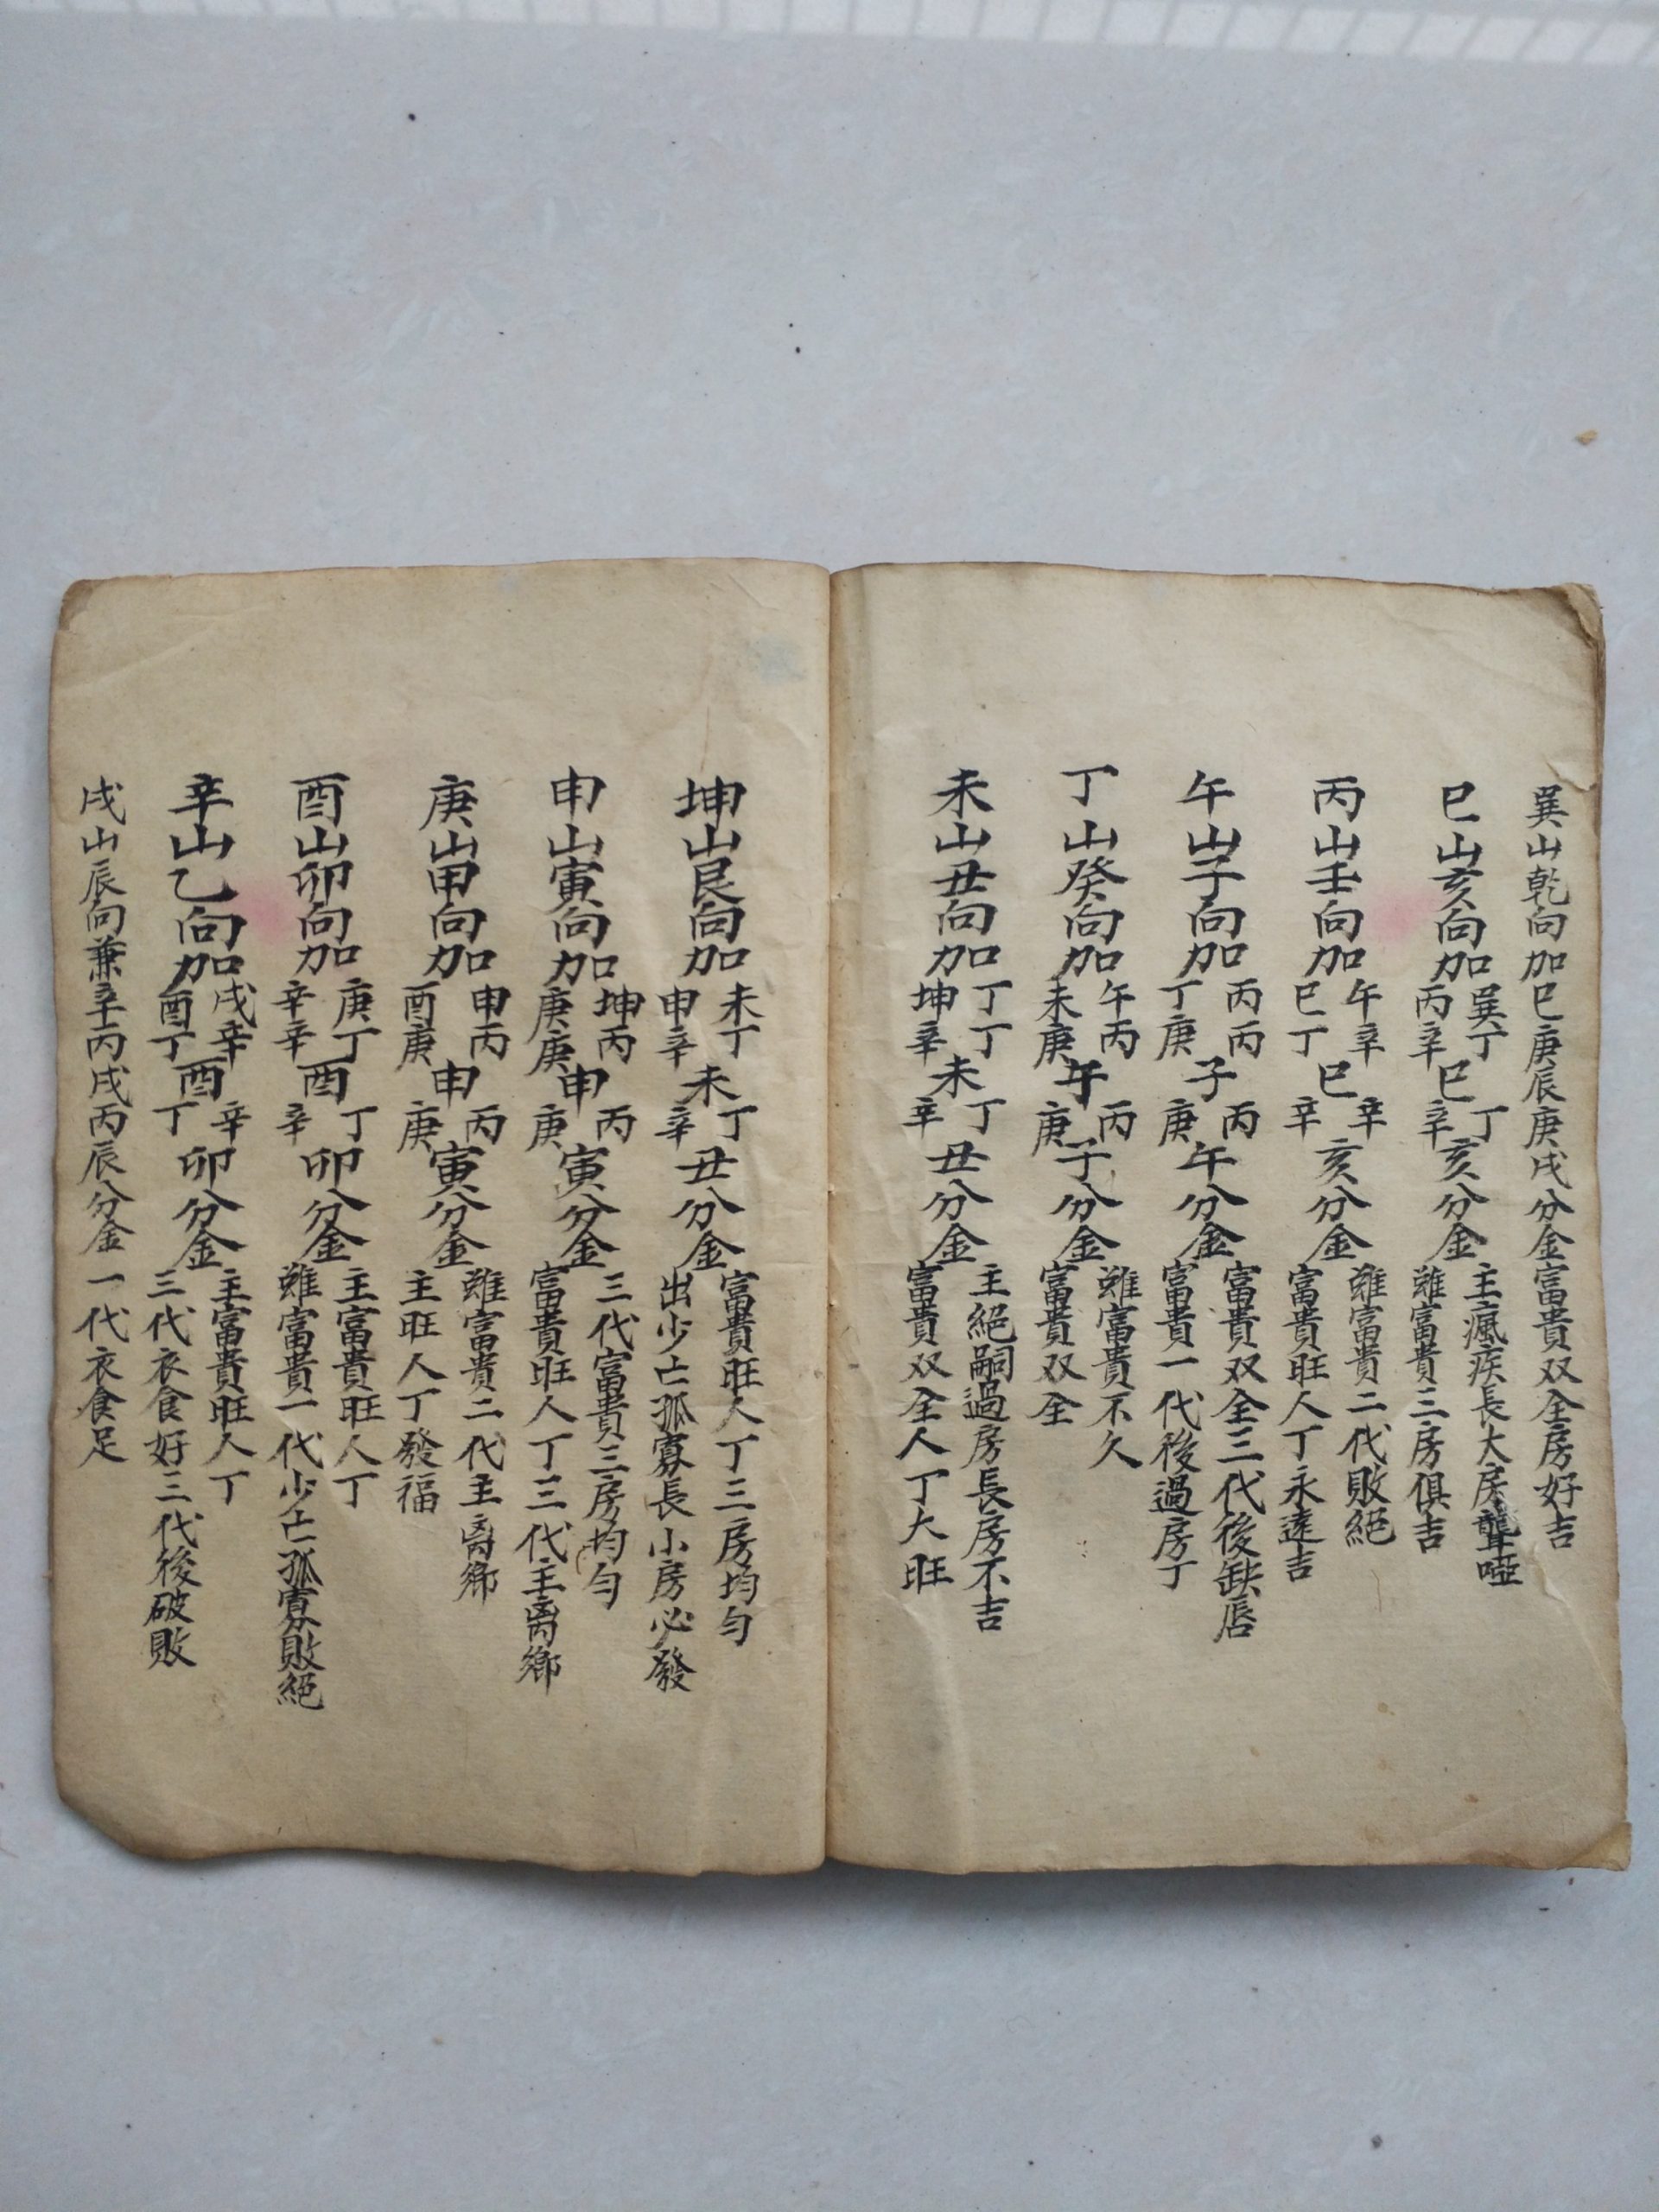 巽山乾向加巳庚辰庚戌分金富貴双全房好吉
巳山亥向加巽丁丙辛巳丁辛亥分金主瘋疾長大房聾啞雖富貴三房俱吉
丙山壬向加午辛巳丁巳辛辛亥分金雖富貴二代敗絕富貴旺人丁永遠吉
午山子向加丙丙丁庚子丙庚午分金富貴双全三代後缺唇富貴一代後過房丁
丁山癸向加午丙未庚午丙庚子分金雖富貴不久富貴双全
未山丑向加丁丁坤辛未丁辛丑分金主絕嗣過房長房不吉富貴双全人丁大旺
坤山艮向加未丁申辛未丁辛丑分金富貴旺人丁三房均匀出少亡孤寡長小房必發
申山寅向加坤丙庚庚申丙庚寅分金三代富貴三房均匀富貴旺人丁三代主离鄉
庚山甲向加申丙酉庚申丙庚寅分金雖富貴二代主离鄉主旺人丁發福
酉山卯向加庚丁辛辛酉丁辛卯分金主富貴旺人丁雖富貴一代少亡孤寡敗絕
辛山乙向加戌辛酉丁酉辛丁卯分金主富貴旺人丁三代衣食好三代後破敗
戌山辰向兼辛丙戌丙辰分金一代衣食足